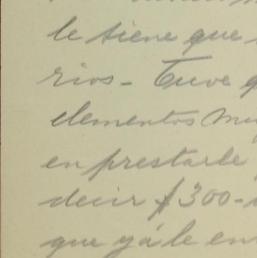 le tiene que
rios - Tuve
elementos
en prestarle
decir $300-
que yá le